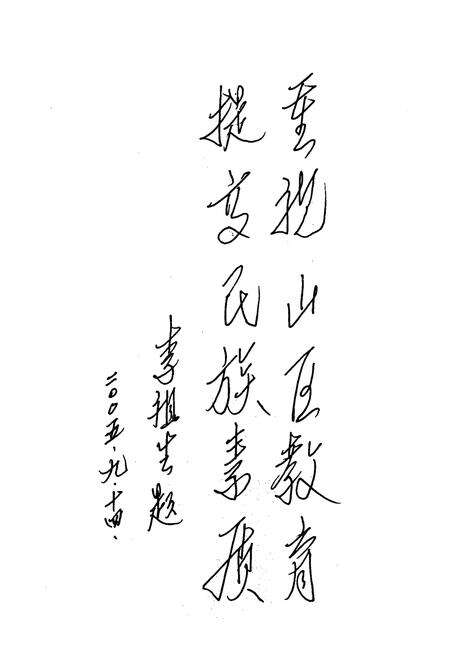 重视山区教育
提高民族素质
李祖生题
二〇〇五.九.十四.